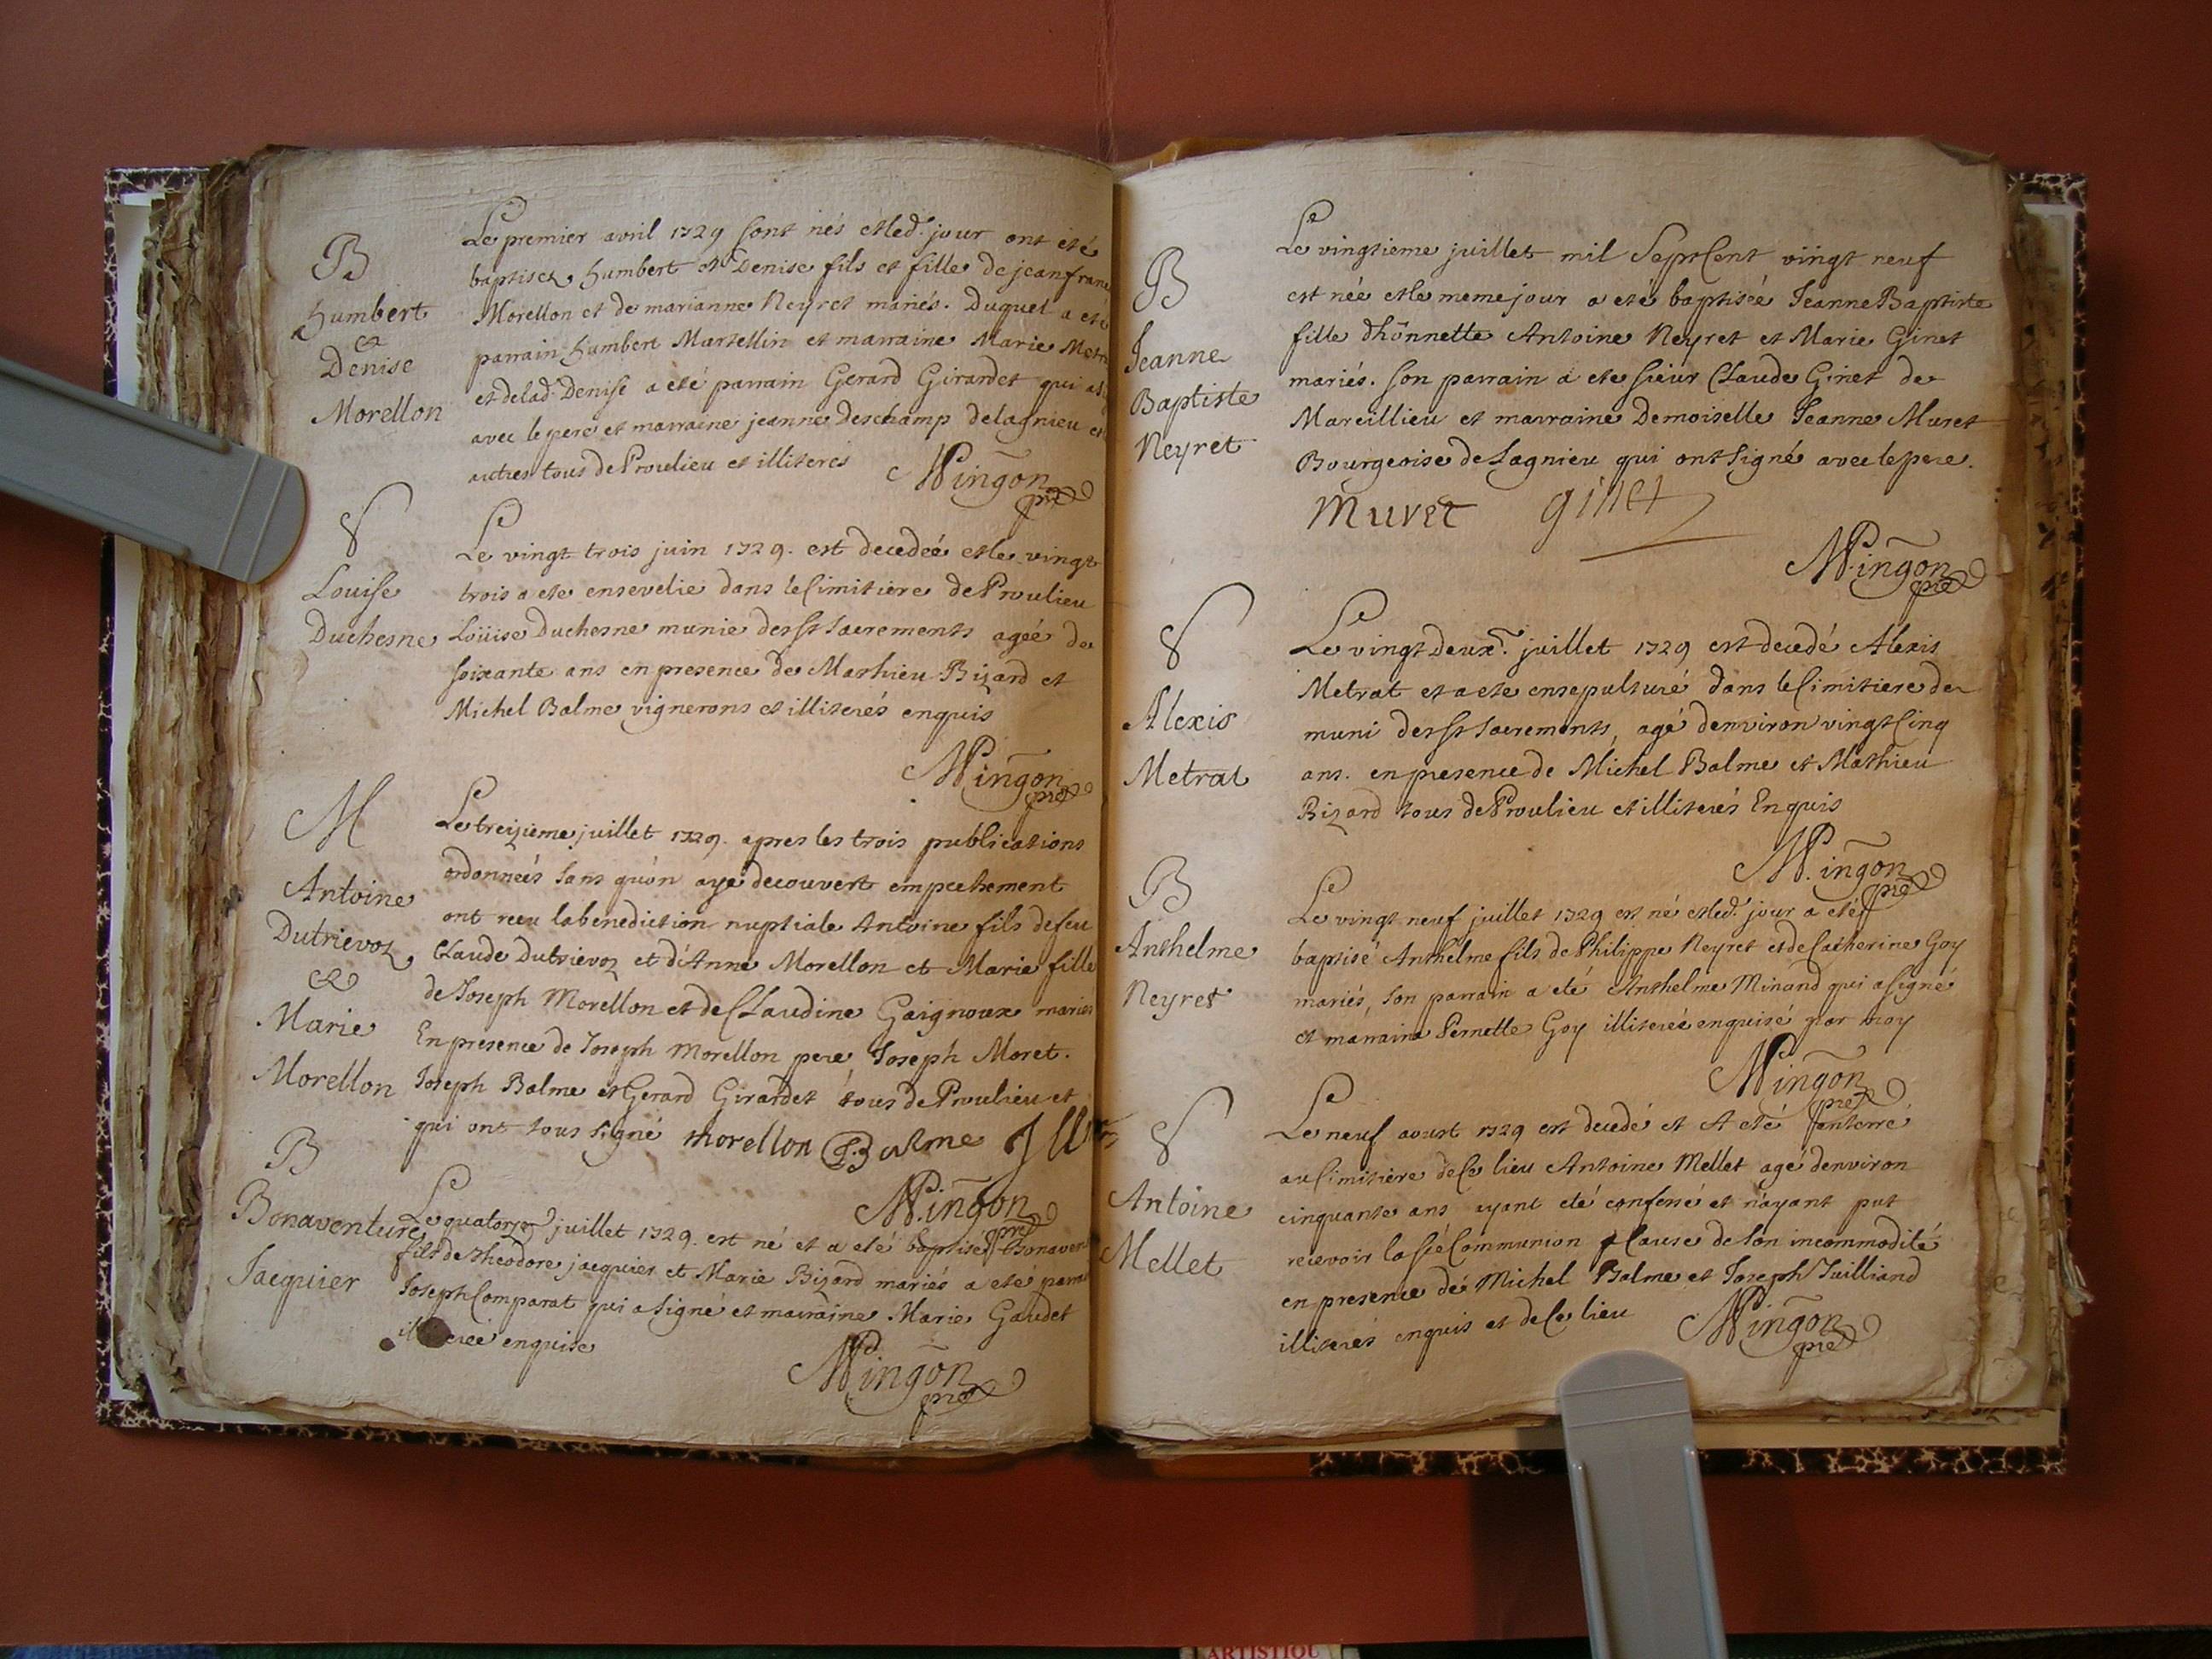 B
humbert
et
Denise
Morellon
Le premier avril 1729 sont nés et led. jour ont été
baptisez humbert et Denise fils et fille de jean fran
Morellon et de marianne Neyret mariés. Duquel a eté
parrain humbert Martellin et marraine Marie Metra
et de lad. Denise a eté parrain Gerard Girardet qui a
avec le pere et marraine jeanne Deschamp de lagnieu
autres tous de Proulieu et illiterés
Mingon
pre
S
Louise
Duchesne
Le vingt trois juin 1729. est decedeé et le vingt
trois a ete ensevelie dans le Cimitiere de Proulieu
Loüise Duchesne munie des sts sacrements ageé de
soixante ans en presence de Mathieu Bizard et
Michel Balme vignerons et illiterés enquis
Mingon
pre
M
Antoine
Dutrievoz
et
Marie
Morellon
Le treizieme juillet 1729. apres les trois publications
ordonneés sans qu'on aye decouvert empechement
ont receu la benediction nuptiale Antoine fils de feu
Claude Dutrievoz et d'Anne Morellon et Marie fille
de Joseph Morellon et de Claudine Gaignoux mariés
En presence de Joseph Morellon pere, Joseph Moret.
Joseph Balme et Gerard Girardet tous de Proulieu et
qui ont tous signé morellon Balme
Mingon
pre
B
Bonaventure
Jacquier
Le quatorze juillet 1729. est né et a eté baptisé Bonaven
fils de theodore jacquier et Marie Bizard mariés a eté parra
Joseph Comparat qui a signé et marraine Marie Gaudet
illitereé enquise
Mingon
pre
B
Jeanne
Baptiste
Neyret
Le vingtieme juillet mil Sept Cent viingt neuf
est née et le meme jour a eté baptiseé Jeanne Baptiste
fille dhônnette Antoine Neyret et Marie Ginet
mariés. son parrain a ete sieur Claude Ginet de
Mareillieu et marraine Demoiselle Jeanne Muret
Bourgeoise de Lagnieu qui ont signé avec le pere.
Muret ginet
Mingon
pre
S
Alexis
Metrat
Le vingt Deux.e juillet 1729 est decedé Alexis
Metrat et a ete ensepulturé dans le Cimitiere de
muni des sts sacrements, agé denviron vingt Cinq
ans. en presence de Michel Balme et Mathieu
Bizard tous de Proulieu et illiterés Enquis
Mingon
pre
B
Anthelme
Neyret
Le vingt neuf juillet 1729 est né et led. jour a eté
baptisé Anthelme fils de Philippe Neyret et de Catherine Goy
mariés, son parrain a eté Anthelme Minand qui a signé
et marraine Pernette Goy illitereé enquise par moy
Mingon
pre
S
Antoine
Mellet
Le neuf aoust 1729 est decedé et A eté enterré
au Cimitiere de Ce lieu Antoine Mellet agé denviron
cinquante ans ayant eté confessé et n'ayant put
recevoir la ste Communion a Cause de son incommodité
en presence de Michel Balme et Joseph Juilliand
illiterés enquis et de Ce lieu
Mingon
pre
ARTISTIQU